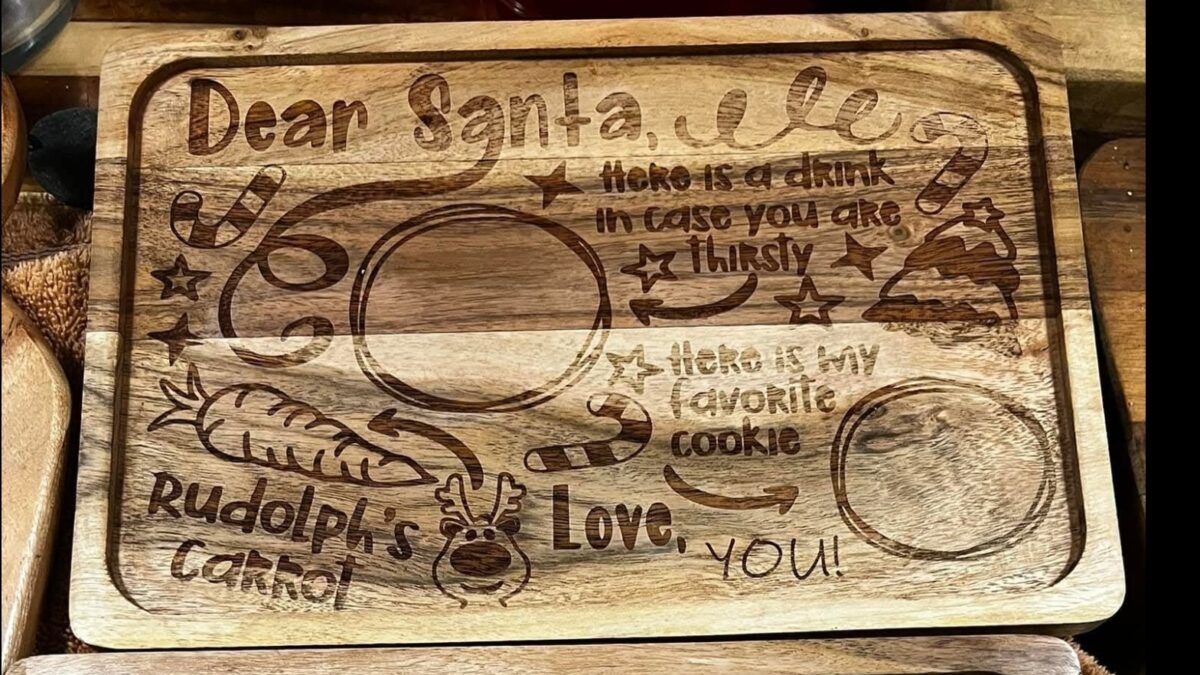 Dear Santa,
Here is a drink
in case you are
thirsty
Here is my
favorite
cookie
Rudolph's
Carrot
Love,
YOU!